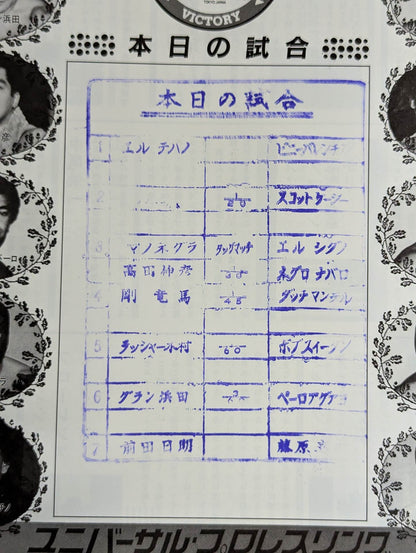 浜田
VICTORY
TOKYO, JAPAN
本日の試合
本日の試合
1 エル テハノ
2 スコットケーシー
3 マノネグラ タッグマッチ エル シグノ
高田伸彦 30 ネグロ ナバロ
4 剛竜馬 45 ダッチマンテル
5 ラッシャー木村 60 ボブスイータン
6 グラン浜田 ペーロアグアヨ
7 前田日明 藤原
ユニバーサル・プロレスリング